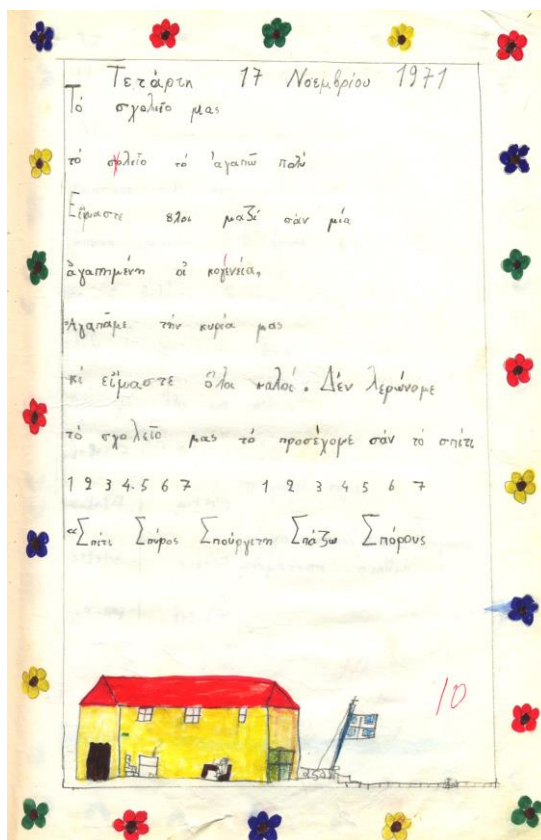 Τετάρτη 17 Νοεμβρίου 1971
Τό σχολεῖο μας
τό σχολεῖο τό ἀγαπῶ πολύ
Εἴμαστε ὅλοι μαζί σάν μία
ἀγαπημένη οἰ κογένεία,
Ἀγαπᾶμε τήν κυρία μας
κί εἴμαστε ὅλοι καλοί. Δέν λερώνομε
τό σχολεῖο μας τό προσέχομε σάν τό σπίτι
1 2 3 4. 5 6 7 1 2 3 4 5 6 7
“Σπίτι Σπύρος Σπούργετη Σπάζω Σπόρους
10